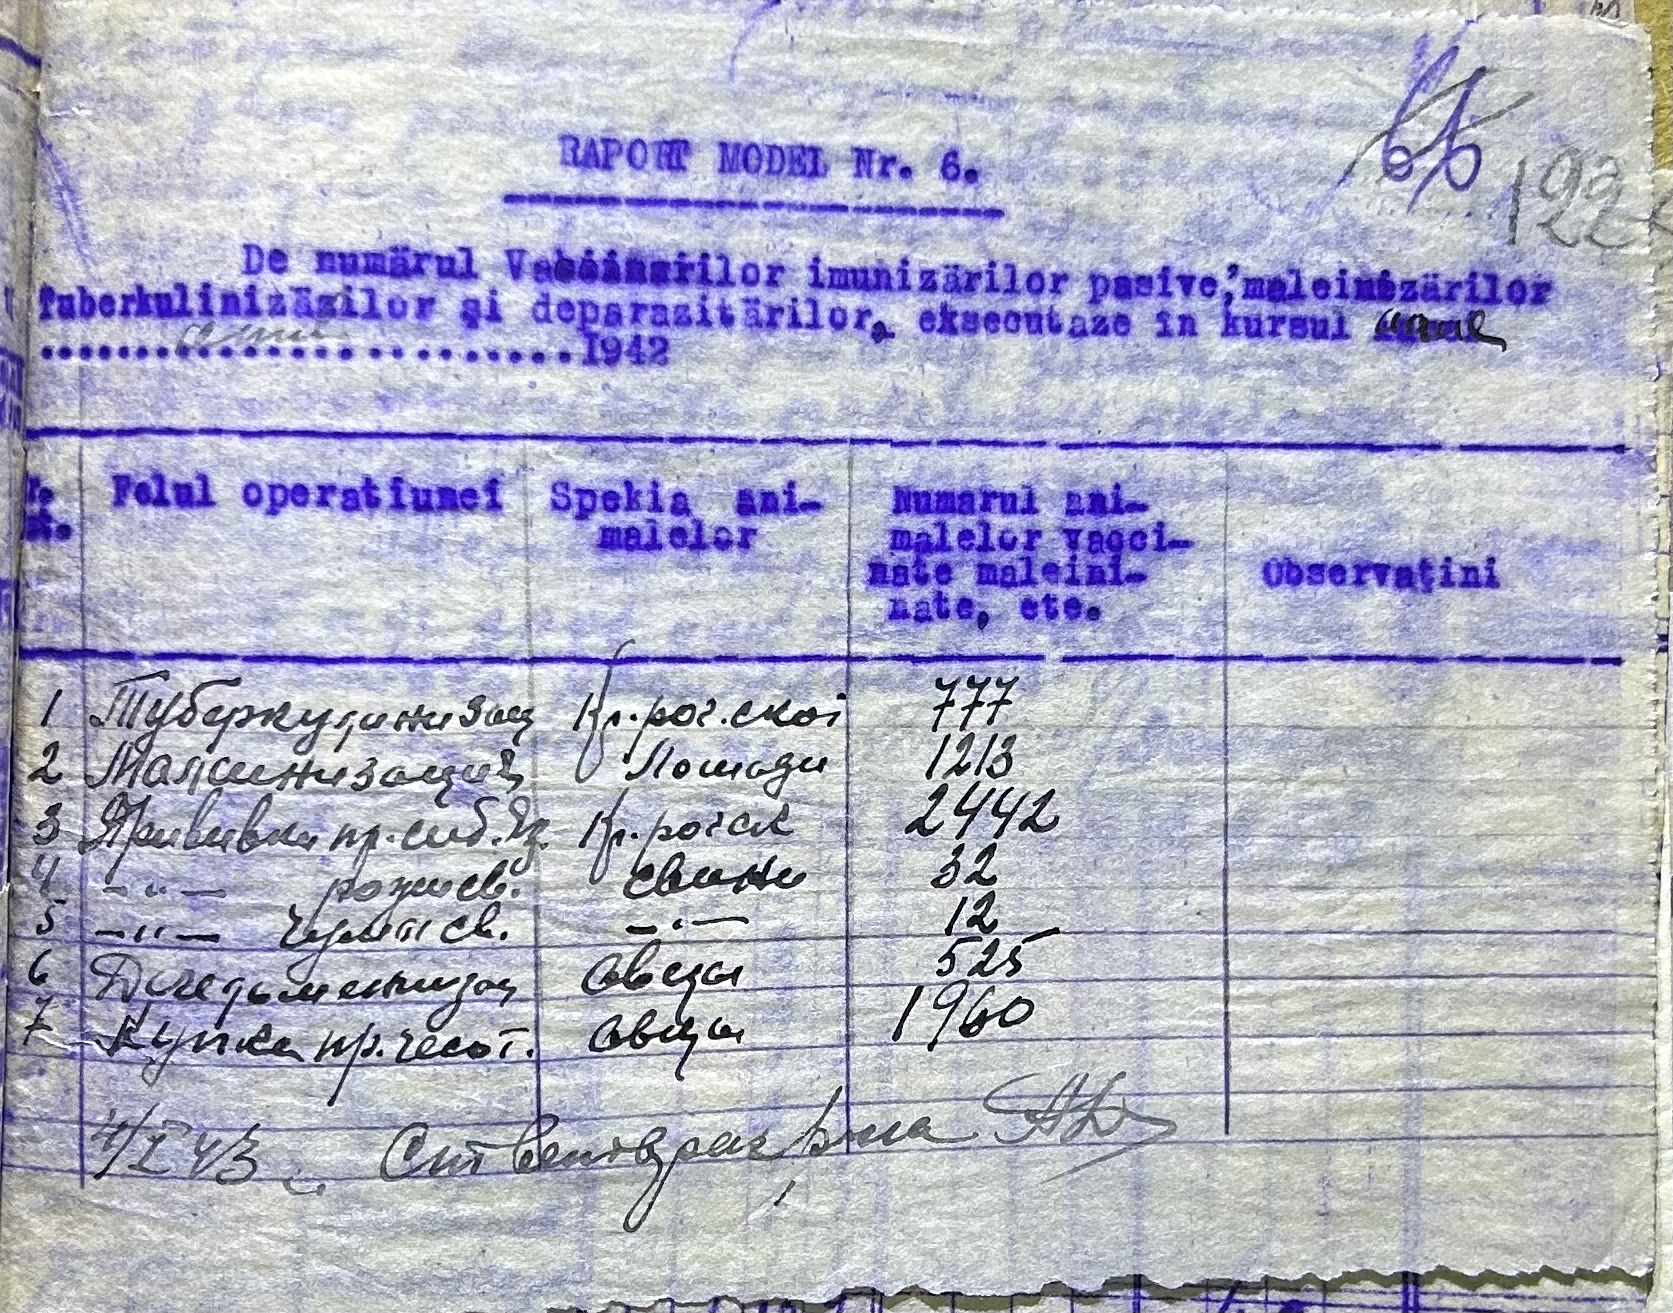 66
192
RAPORT MODEL Nr. 6.
De numărul Vaccinarilor imunizărilor pasive, maleinizărilor
Tuberkulinizărilor și deparazitărilor, eksecutaze in kursul
1942
Felul operatiunei
Spekia ani-
malelor
Numarul ani-
malelor vacci-
nate maleini-
nate, etc.
Observațini
1 Туберкулинизац Кр. рог. скот 777
2 Маллинизация Лошади 1213
3 Прививки пр. сиб. яз. Кр. рог ск 2442
4 -"- рожи св. свиньи 32
5 -"- чумы св. -"- 12
6 овцы 525
7 Купка пр. чесот. овцы 1960
4/I 43 г. Ст Ветврач